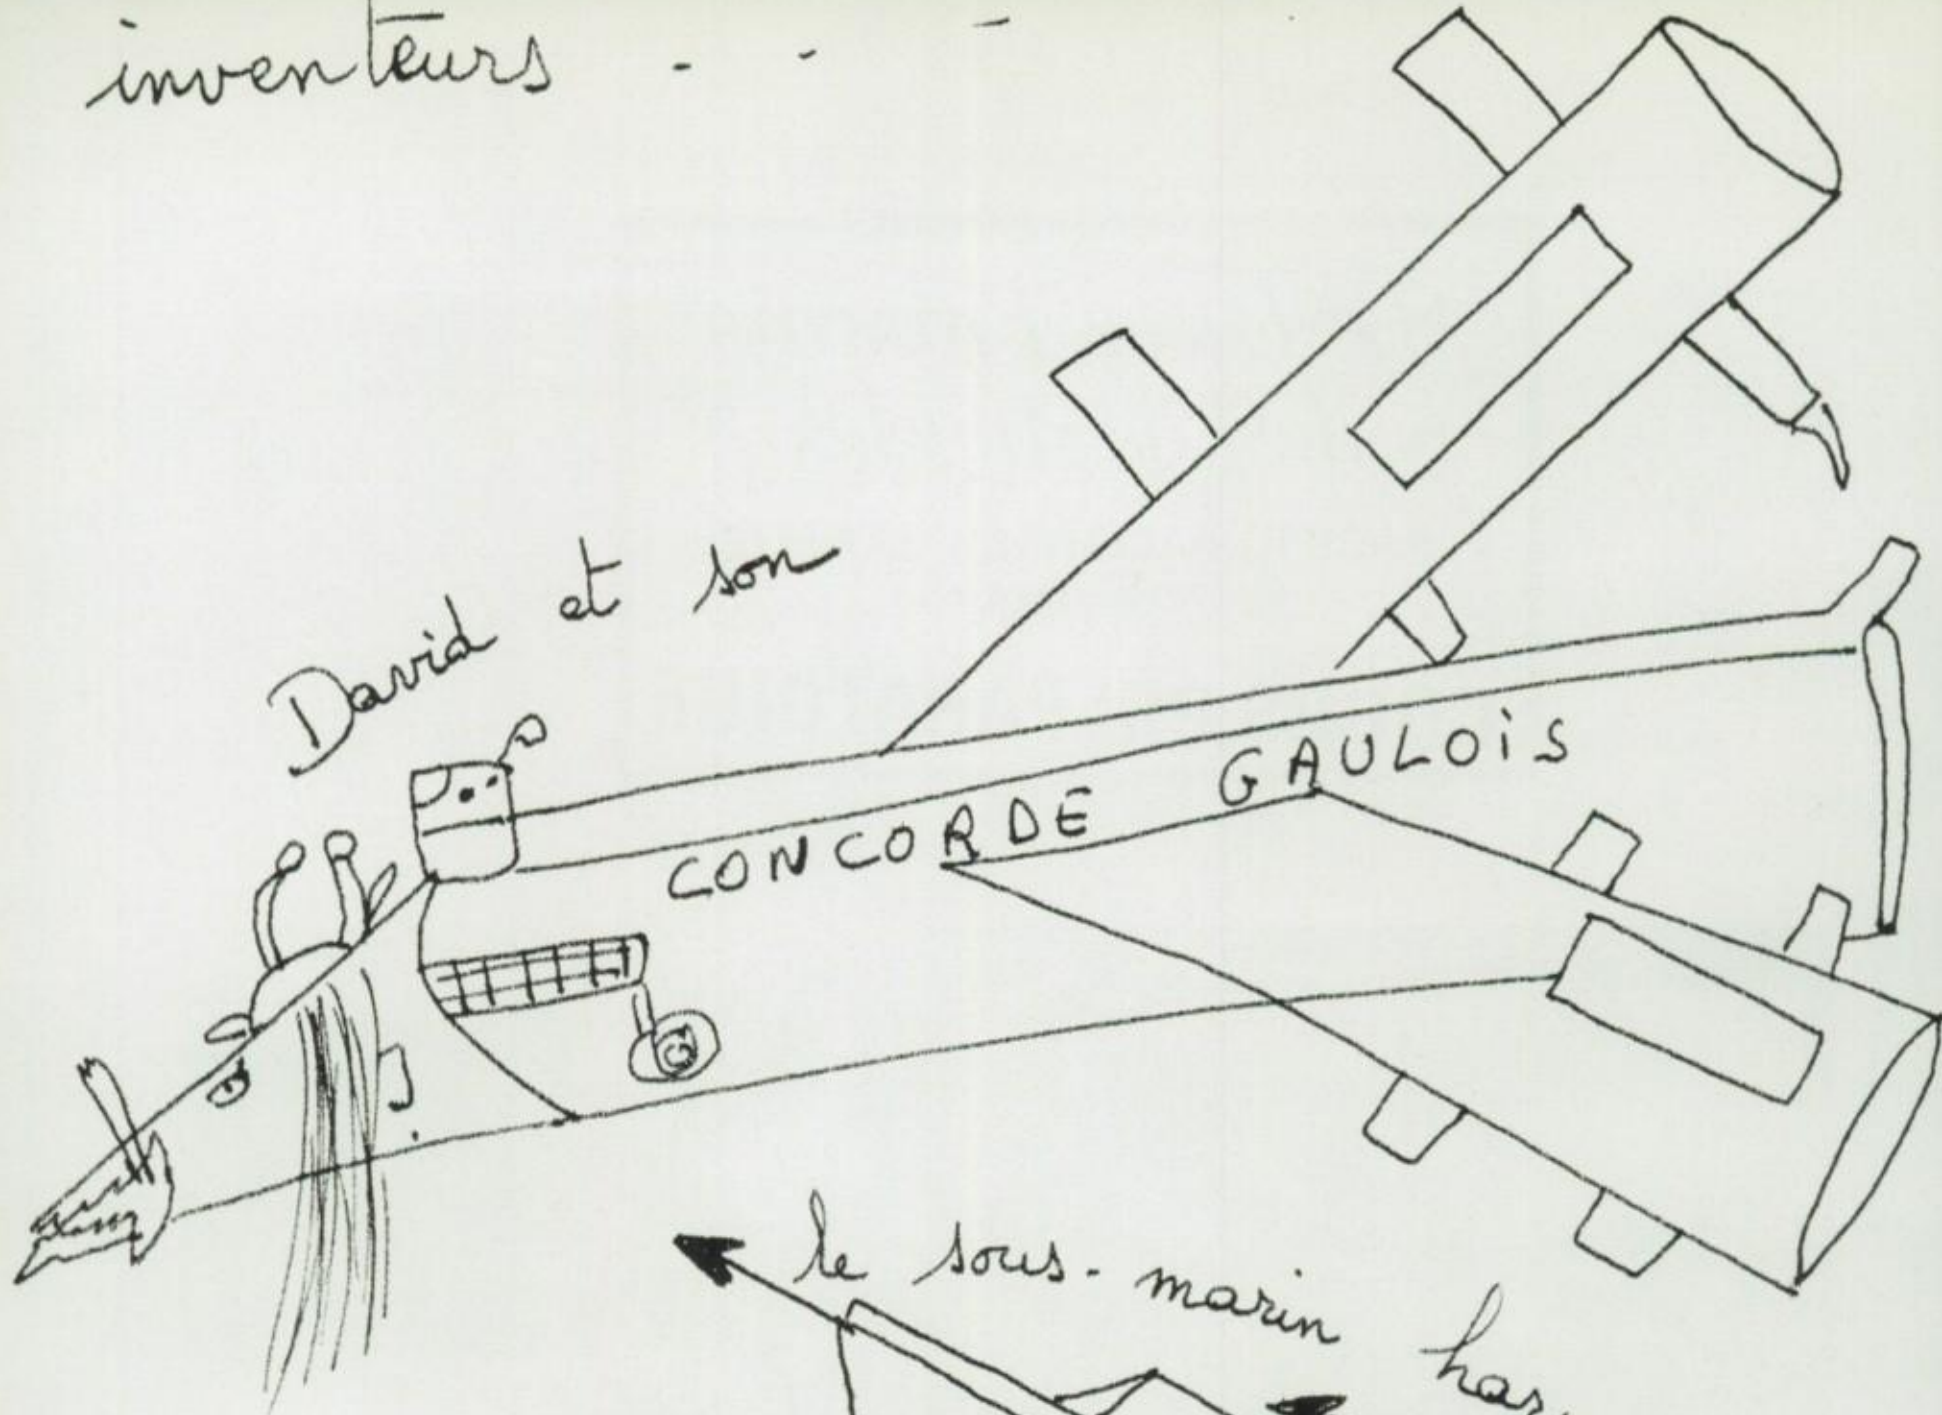 inventeurs - - -
David et son
CONCORDE GAULOiS
le sous-marin